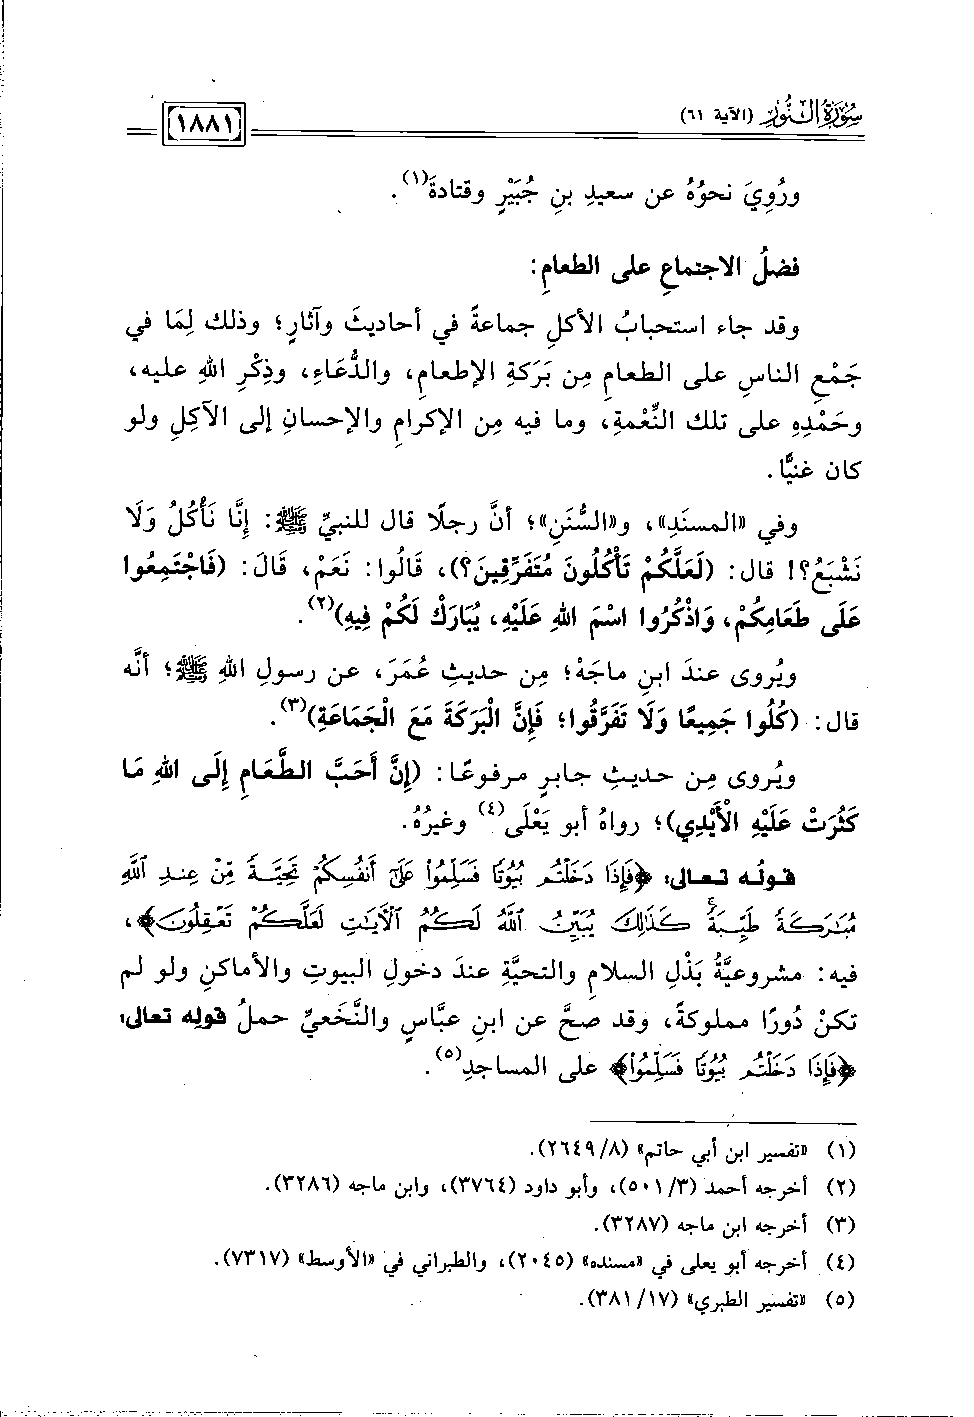 سُورَةُ النُّورِ (الآية ٦١)
١٨٨١
ورُوِيَ نحوُهُ عن سعيدِ بنِ جُبَيْرٍ وقتادةَ(١).
فضلُ الاجتماعِ على الطعامِ:
وقد جاء استحبابُ الأكلِ جماعةً في أحاديثَ وآثارٍ؛ وذلك لِمَا في
جَمْعِ الناسِ على الطعامِ مِن بَرَكةِ الإطعامِ، والدُّعَاءِ، وذِكْرِ اللهِ عليه،
وحَمْدِهِ على تلك النِّعْمةِ، وما فيه مِن الإكرامِ والإحسانِ إلى الآكِلِ ولو
كان غنيًّا.
وفي «المسنَدِ»، و«السُّنَنِ»؛ أنَّ رجلًا قال للنبيِّ ﷺ: إِنَّا نَأْكُلُ وَلَا
نَشْبَعُ؟! قال: (لَعَلَّكُمْ تَأْكُلُونَ مُتَفَرِّقِينَ؟)، قَالُوا: نَعَمْ، قَالَ: (فَاجْتَمِعُوا
عَلَى طَعَامِكُمْ، وَاذْكُرُوا اسْمَ اللهِ عَلَيْهِ، يُبَارَكْ لَكُمْ فِيهِ)(٢).
ويُروى عندَ ابنِ ماجَهْ؛ مِن حديثِ عُمَرَ، عن رسولِ اللهِ ﷺ؛ أنَّه
قال: (كُلُوا جَمِيعًا وَلَا تَفَرَّقُوا؛ فَإِنَّ الْبَرَكَةَ مَعَ الْجَمَاعَةِ)(٣).
ويُروى مِن حديثِ جابرٍ مرفوعًا: (إِنَّ أَحَبَّ الطَّعَامِ إِلَى اللهِ مَا
كَثُرَتْ عَلَيْهِ الْأَيْدِي)؛ رواهُ أبو يَعْلَى(٤) وغيرُهُ.
قولُه تعالى: ﴿فَإِذَا دَخَلْتُم بُيُوتًا فَسَلِّمُوا۟ عَلَىٰٓ أَنفُسِكُمْ تَحِيَّةً مِّنْ عِندِ ٱللَّهِ
مُبَـٰرَكَةً طَيِّبَةً ۚ كَذَٰلِكَ يُبَيِّنُ ٱللَّهُ لَكُمُ ٱلْـَٔايَـٰتِ لَعَلَّكُمْ تَعْقِلُونَ﴾،
فيه: مشروعيَّةُ بَذْلِ السلامِ والتحيَّةِ عندَ دخولِ البيوتِ والأماكنِ ولو لم
تكنْ دُورًا مملوكةً، وقد صحَّ عن ابنِ عبَّاسٍ والنَّخَعيِّ حملُ قولِه تعالى:
﴿فَإِذَا دَخَلْتُم بُيُوتًا فَسَلِّمُوا۟﴾ على المساجدِ(٥).
(١) «تفسير ابن أبي حاتم» (٨/ ٢٦٤٩).
(٢) أخرجه أحمد (٣/ ٥٠١)، وأبو داود (٣٧٦٤)، وابن ماجه (٣٢٨٦).
(٣) أخرجه ابن ماجه (٣٢٨٧).
(٤) أخرجه أبو يعلى في «مسنده» (٢٠٤٥)، والطبراني في «الأوسط» (٧٣١٧).
(٥) «تفسير الطبري» (١٧/ ٣٨١).